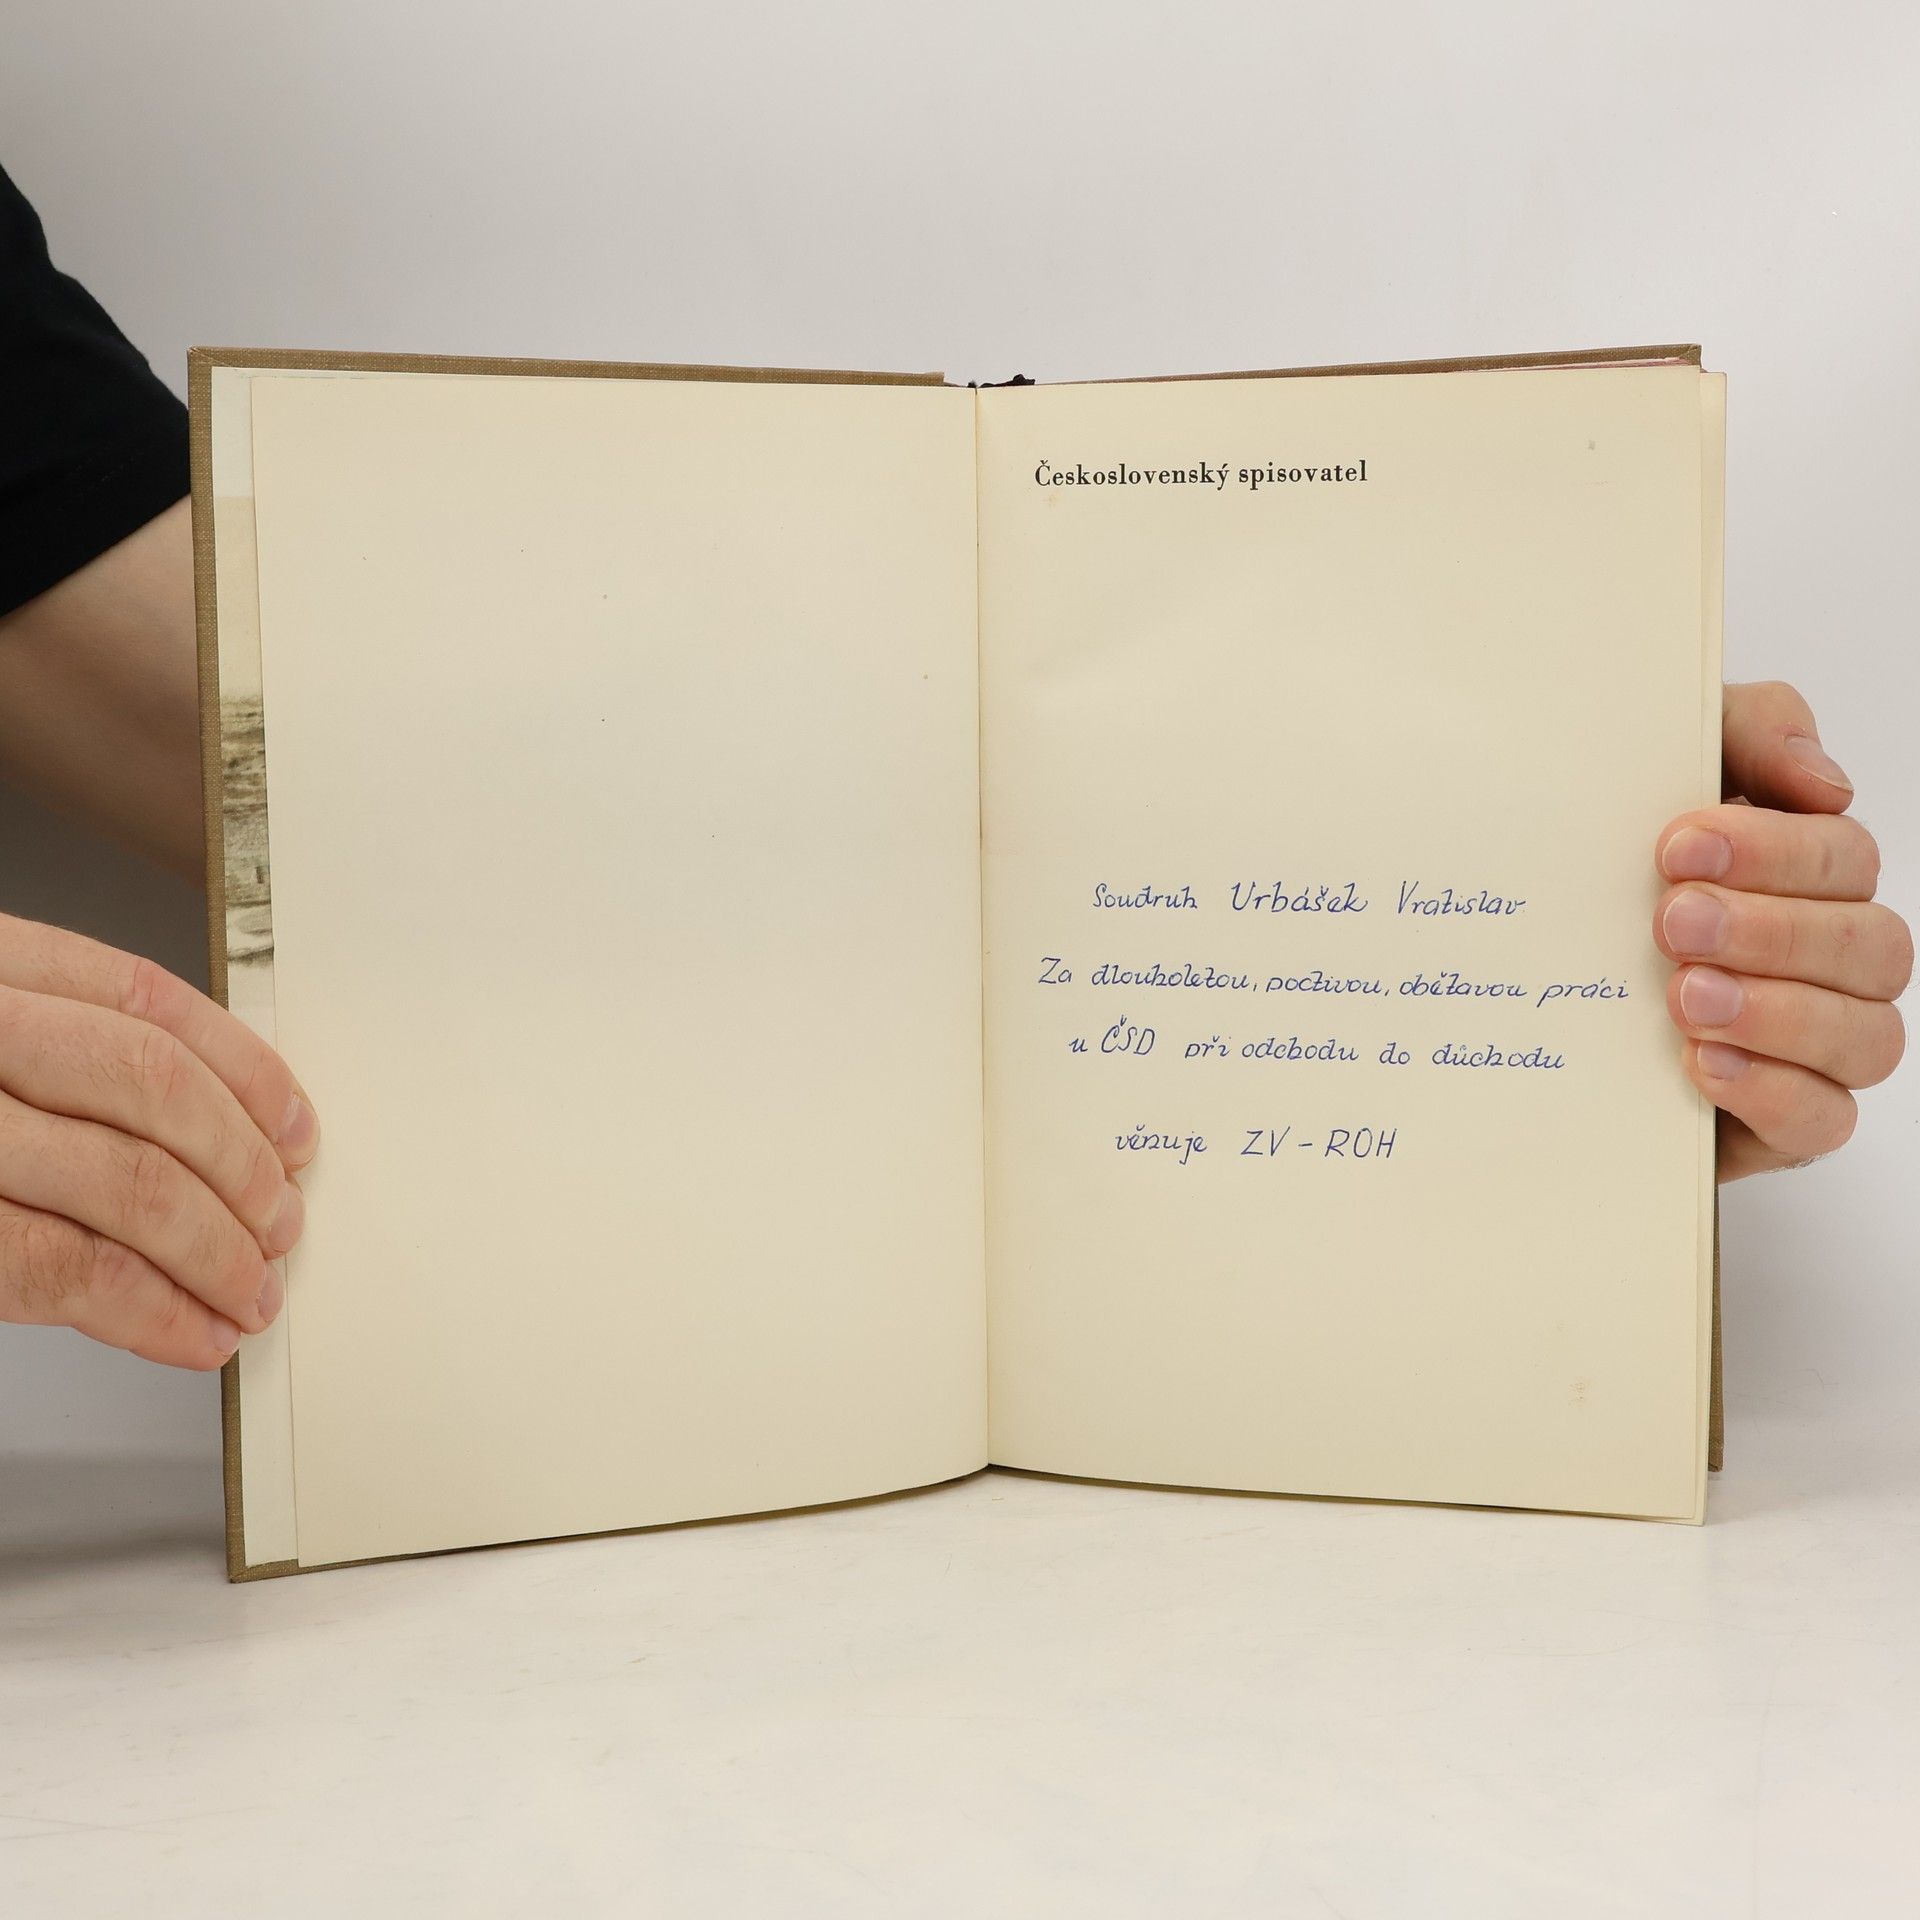 Československý spisovatel
Soudruh Urbášek Vratislav
Za dlouholetou, poctivou, obětavou práci
u ČSD při odchodu do důchodu
věnuje ZV - ROH